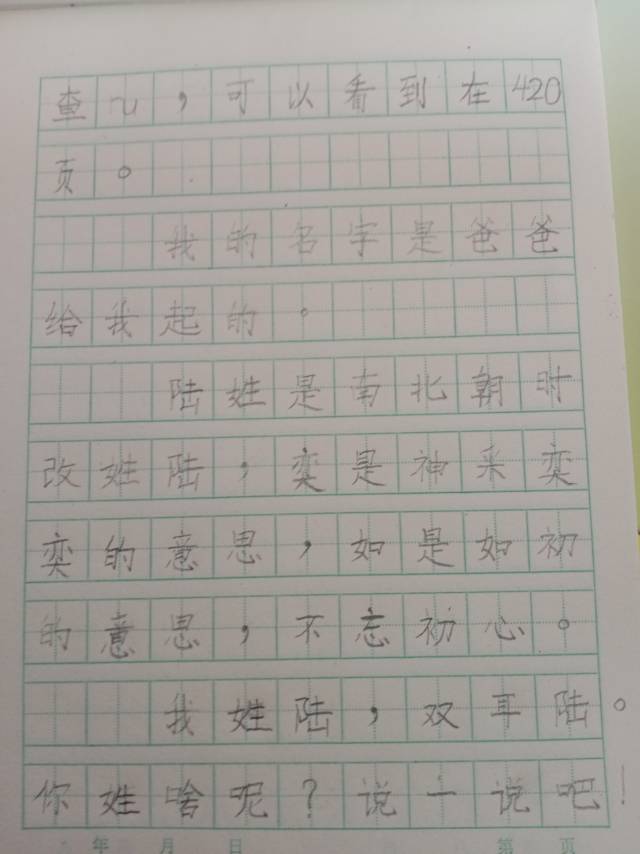 查lu，可以看到在420
页。
我的名字是爸爸
给我起的。
陆姓是南北朝时
改姓陆，奕是神采奕
奕的意思，如是如初
的意思，不忘初心。
我姓陆，双耳陆。
你姓啥呢？说一说吧！
年 月 日 第 页